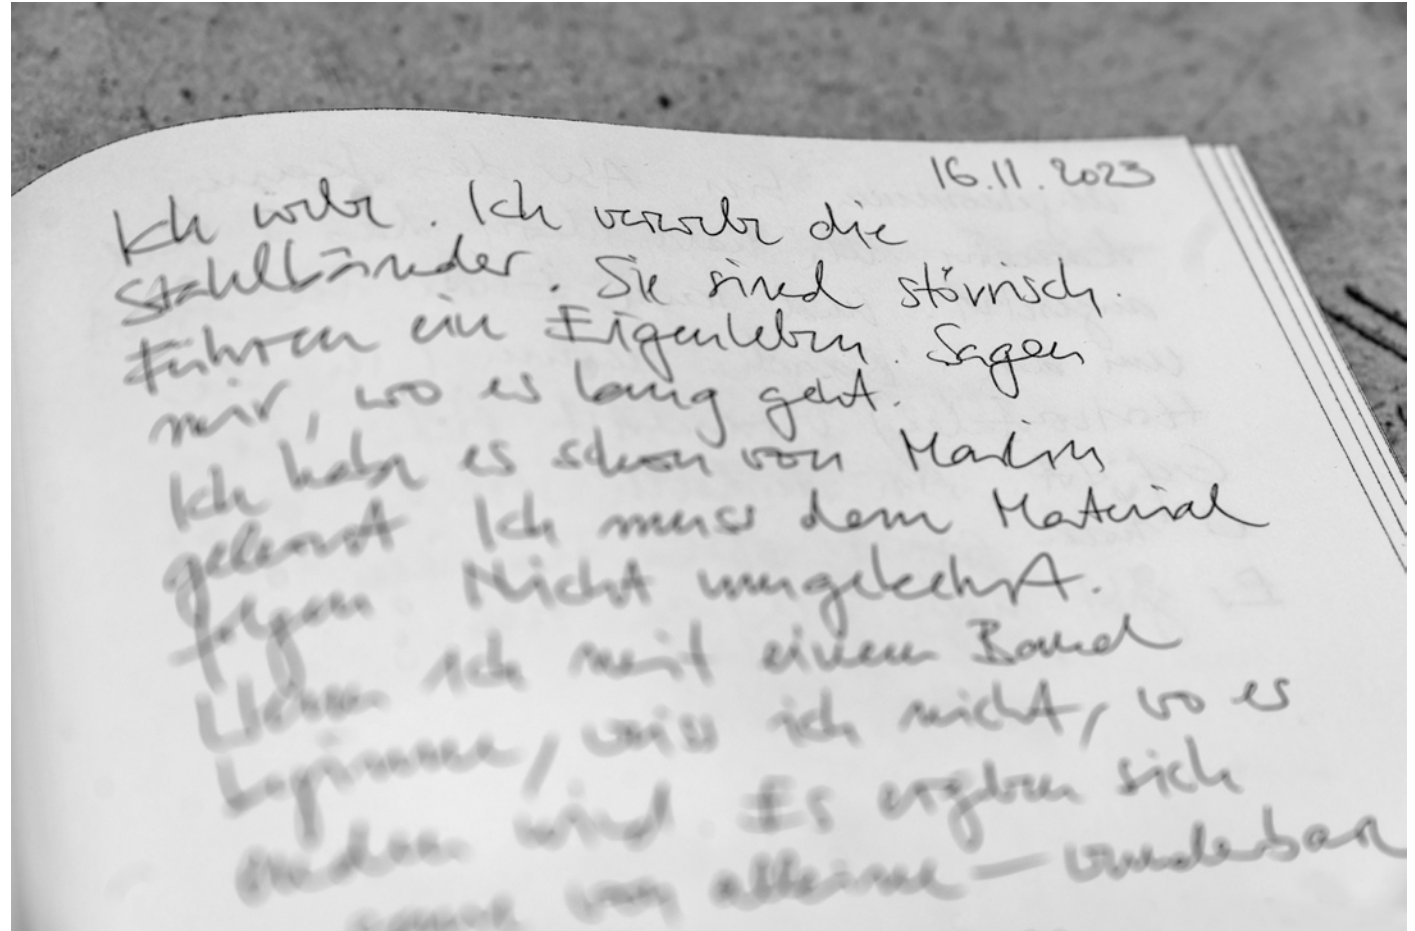 16.11.2023
Ich webe. Ich verwebe die
Stahlbänder. Sie sind störrisch.
Führen ein Eigenleben. Sagen
mir, wo es lang geht.
Ich habe es schon von Martin
gelernt Ich muss dem Material
folgen Nicht umgekehrt.
Wenn ich mit einem Band
beginne, weiss ich nicht, wo es
enden wird. Es ergeben sich
von alleine – wunderbar